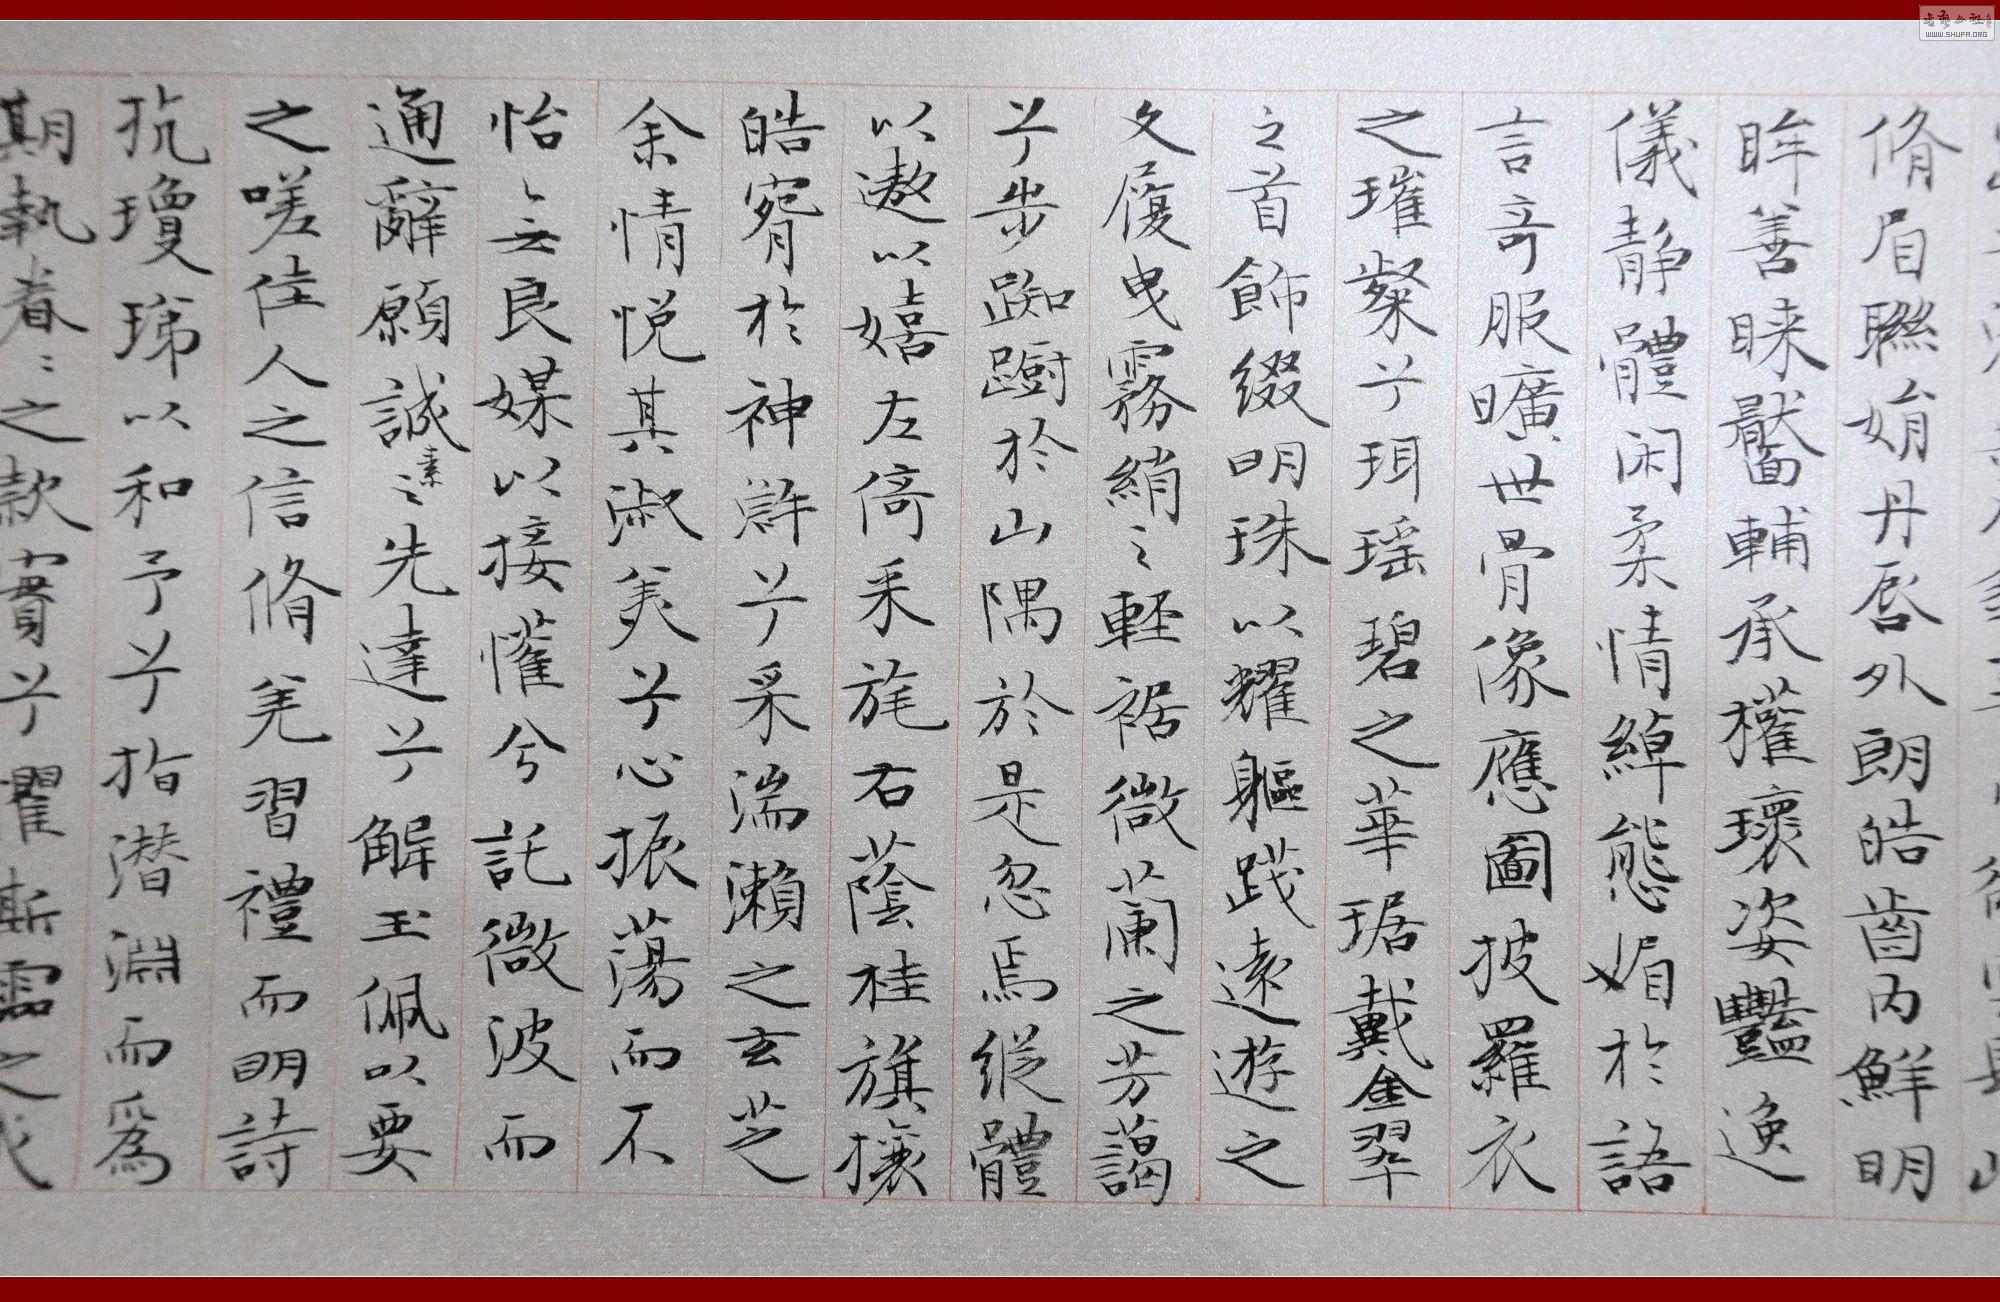 脩眉聯娟丹唇外朗皓齒内鮮明
眸善睞靨輔承權瓌姿豔逸
儀静體闲柔情綽態媚於語
言奇服曠世骨像應圖披羅衣
之璀粲兮珥瑶碧之華琚戴金翠
之首飾綴明珠以耀軀踐遠遊之
文履曳霧綃之輕裾微蘭之芳藹
兮步踟蹰於山隅於是忽焉縱體
以遨以嬉左倚采旄右蔭桂旗攘
皓腕於神滸兮采湍瀨之玄芝
余情悦其淑美兮心振蕩而不
怡無良媒以接懽兮託微波而
通辭願誠素之先達兮解玉佩以要
之嗟佳人之信脩羌習禮而明詩
抗瓊珶以和予兮指潜淵而為
期執眷眷之款實兮懼斯靈之
WWW.SHUFA.ORG